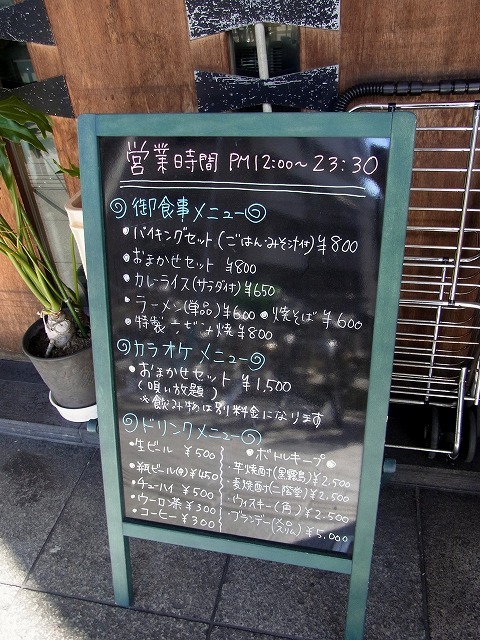 営業時間 PM12:00～23:30
御食事メニュー
・バイキングセット(ごはん・みそ汁付)¥800
・おまかせセット ¥800
・カレーライス(サラダ付)¥650
・ラーメン(単品)¥600 ・焼そば ¥600
・特製 ちぢみ焼 ¥800
カラオケ メニュー
・おまかせセット ¥1,500
(唄い放題)
※飲み物は別料金になります
ドリンクメニュー
・生ビール ¥500
・瓶ビール(中)¥450
・チューハイ ¥500
・ウーロン茶 ¥300
・コーヒー ¥300
・ボトルキープ・
・芋焼酎(黒霧島)¥2,500
・麦焼酎(二階堂)¥2,500
・ウィスキー(角)¥2,500
・ブランデー(V.O スリム)¥5,000